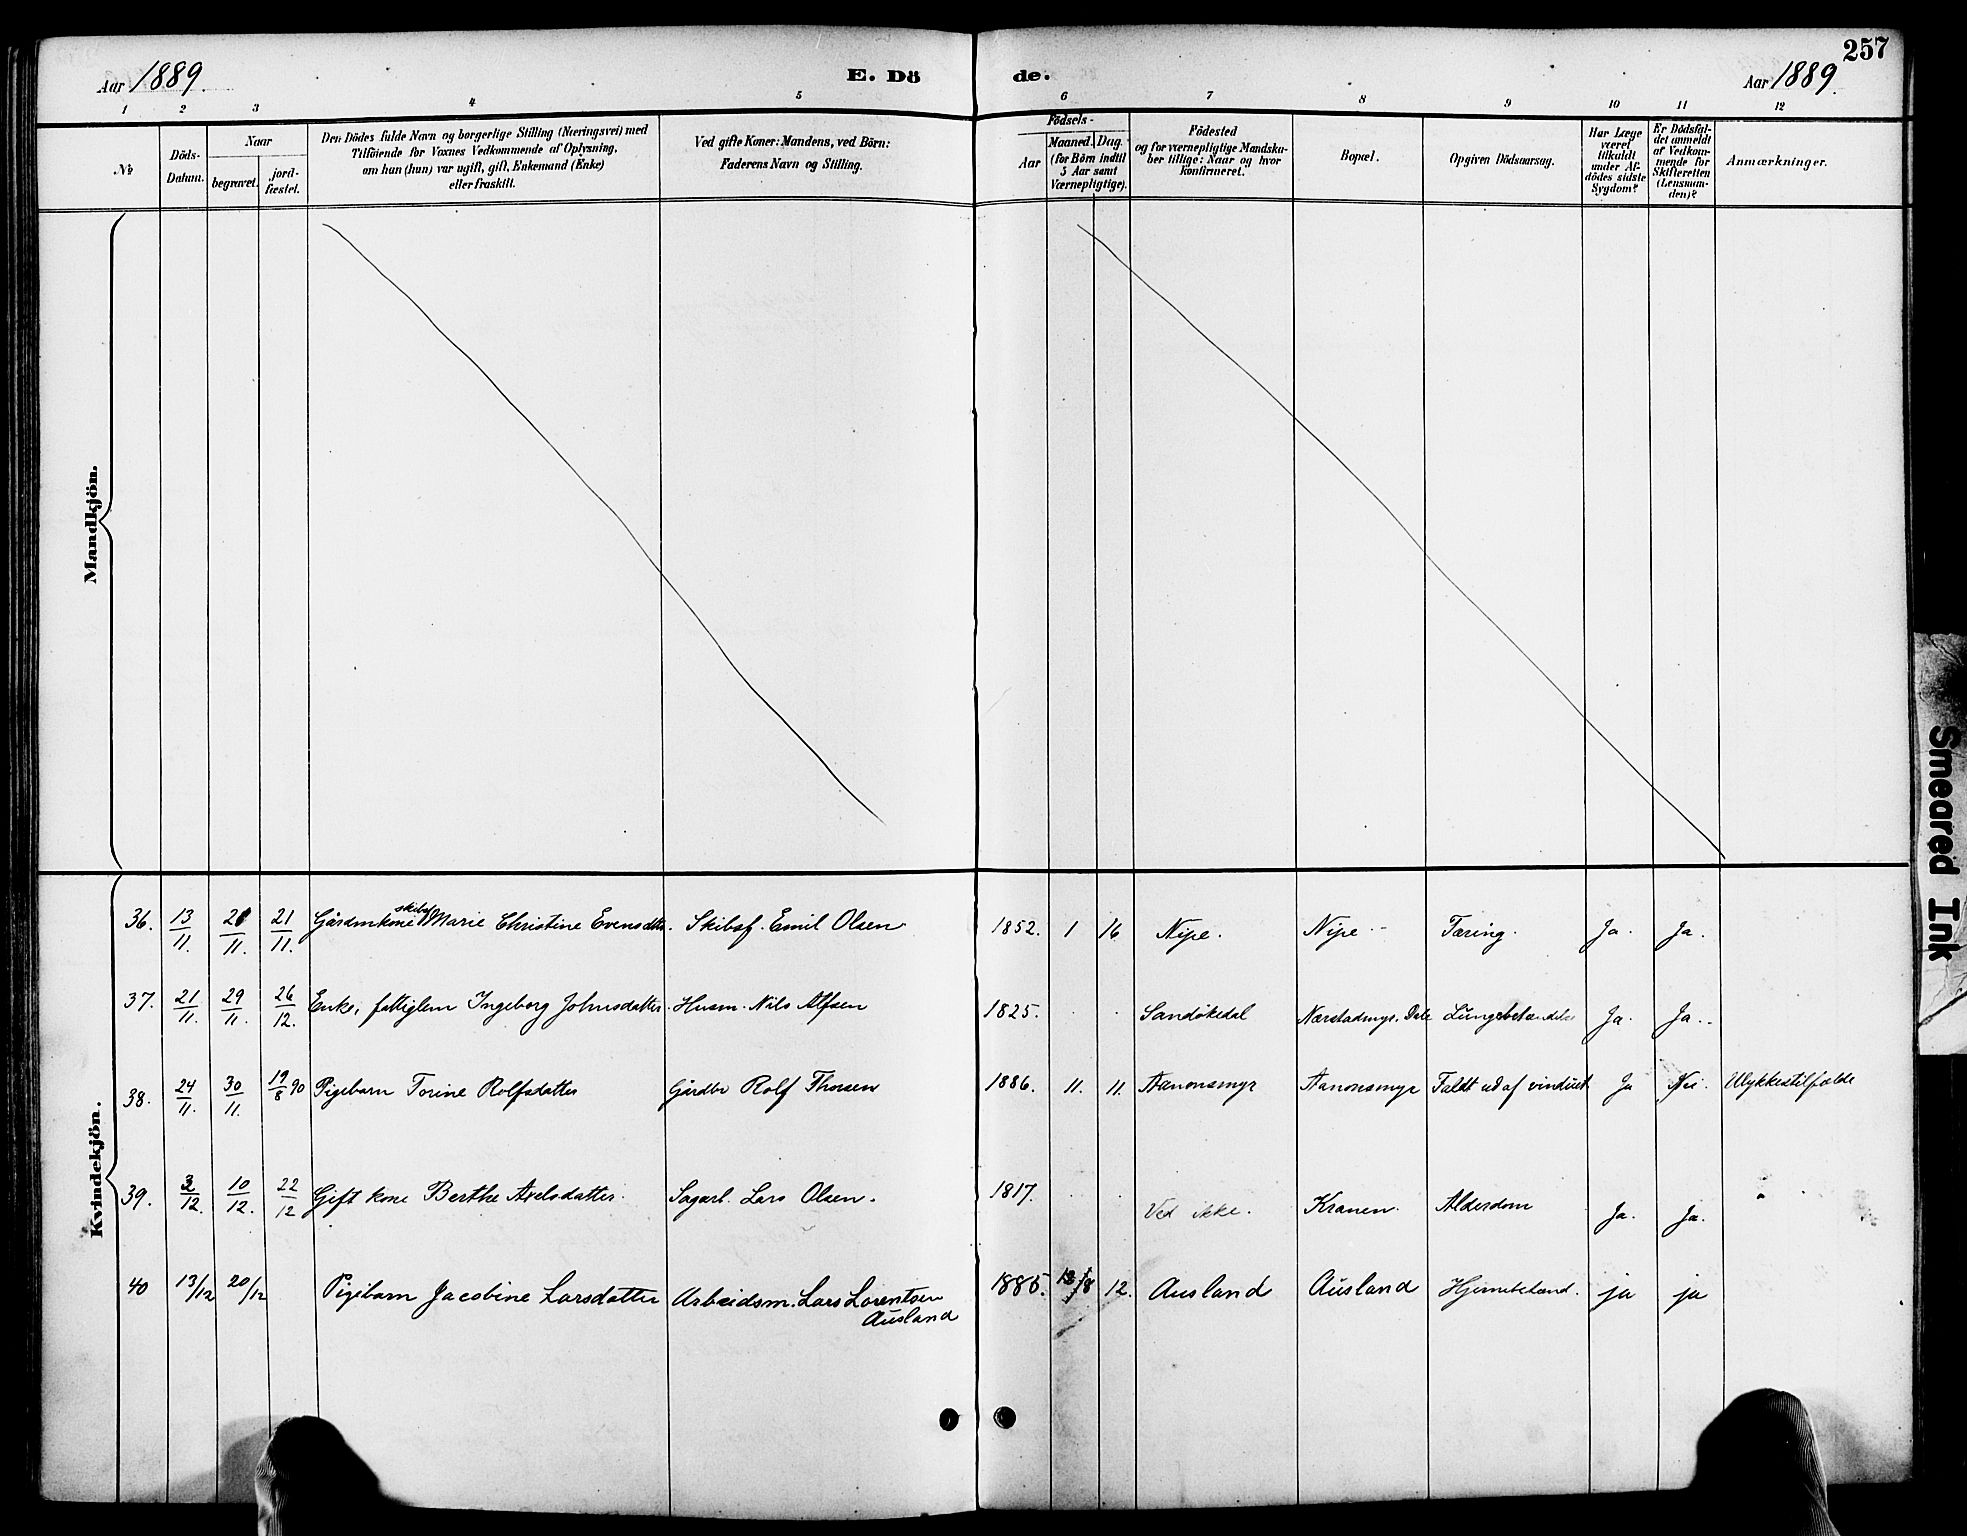 257
Aar 1889.
E. Dö de.
Aar 1889
1 2 3 4 5 6 7 8 9 10 11 12
№
Döds-Datum.
Naar
begravet.
jord-fæstet.
Den Dödes fulde Navn og borgerlige Stilling (Næringsvei) med
Tilföiende for Voxnes Vedkommende af Oplysning,
om han (hun) var ugift, gift, Enkemand (Enke)
eller fraskilt.
Ved gifte Koner: Mandens, ved Börn:
Faderens Navn og Stilling.
Födsels-
Aar
Maaned. Dag.
(for Börn indtil
5 Aar samt
Værnepligtige).
Födested
og for værnepligtige Mandska-
ber tillige: Naar og hvor
konfirmeret.
Bopæl.
Opgiven Dödsaarsag.
Har Læge
været
tilkaldt
under Af-
dödes sidste
Sygdom?
Er Dödsfal-
det anmeldt
af Vedkom-
mende for
Skifteretten
(Lensman-
den)?
Anmærkninger.
Mandkjön.
Kvindekjön.
36. 13/11. 21/11. 21/11. Gårdmkone skibsf Marie Christine Evensdtr. Skibsf. Emil Olsen 1852. 1 16 Nipe. Nipe Tæring. Ja. Ja.
37. 21/11. 29/11. 26/12. Enke, fattiglem Ingeborg Johnsdatter. Husm. Nils Alfsen 1825. Sandökedal Lungebetændelse Ja. Ja.
38. 24/11. 30/11. 19/8 90 Pigebarn Torine Rolfsdatter Gårdbr Rolf Thorsen 1886. 11. 11. Aanonsmyr Aanonsmyr Faldt ud af vinduet Ja Nei. Ulykkestilfælde
39. 3/12. 10/12. 22/12 Gift kone Berthe Axelsdatter. Sagarb. Lars Olsen. 1817. Ved ikke. Kranen. Alderdom Ja. Ja.
40 13/12 20/12 Pigebarn Jacobine Larsdatter Arbeidsm. Lars Lorentsen
Ausland 1885. 12. Ausland Ausland Hjernebetænd. ja ja
Smeared Ink